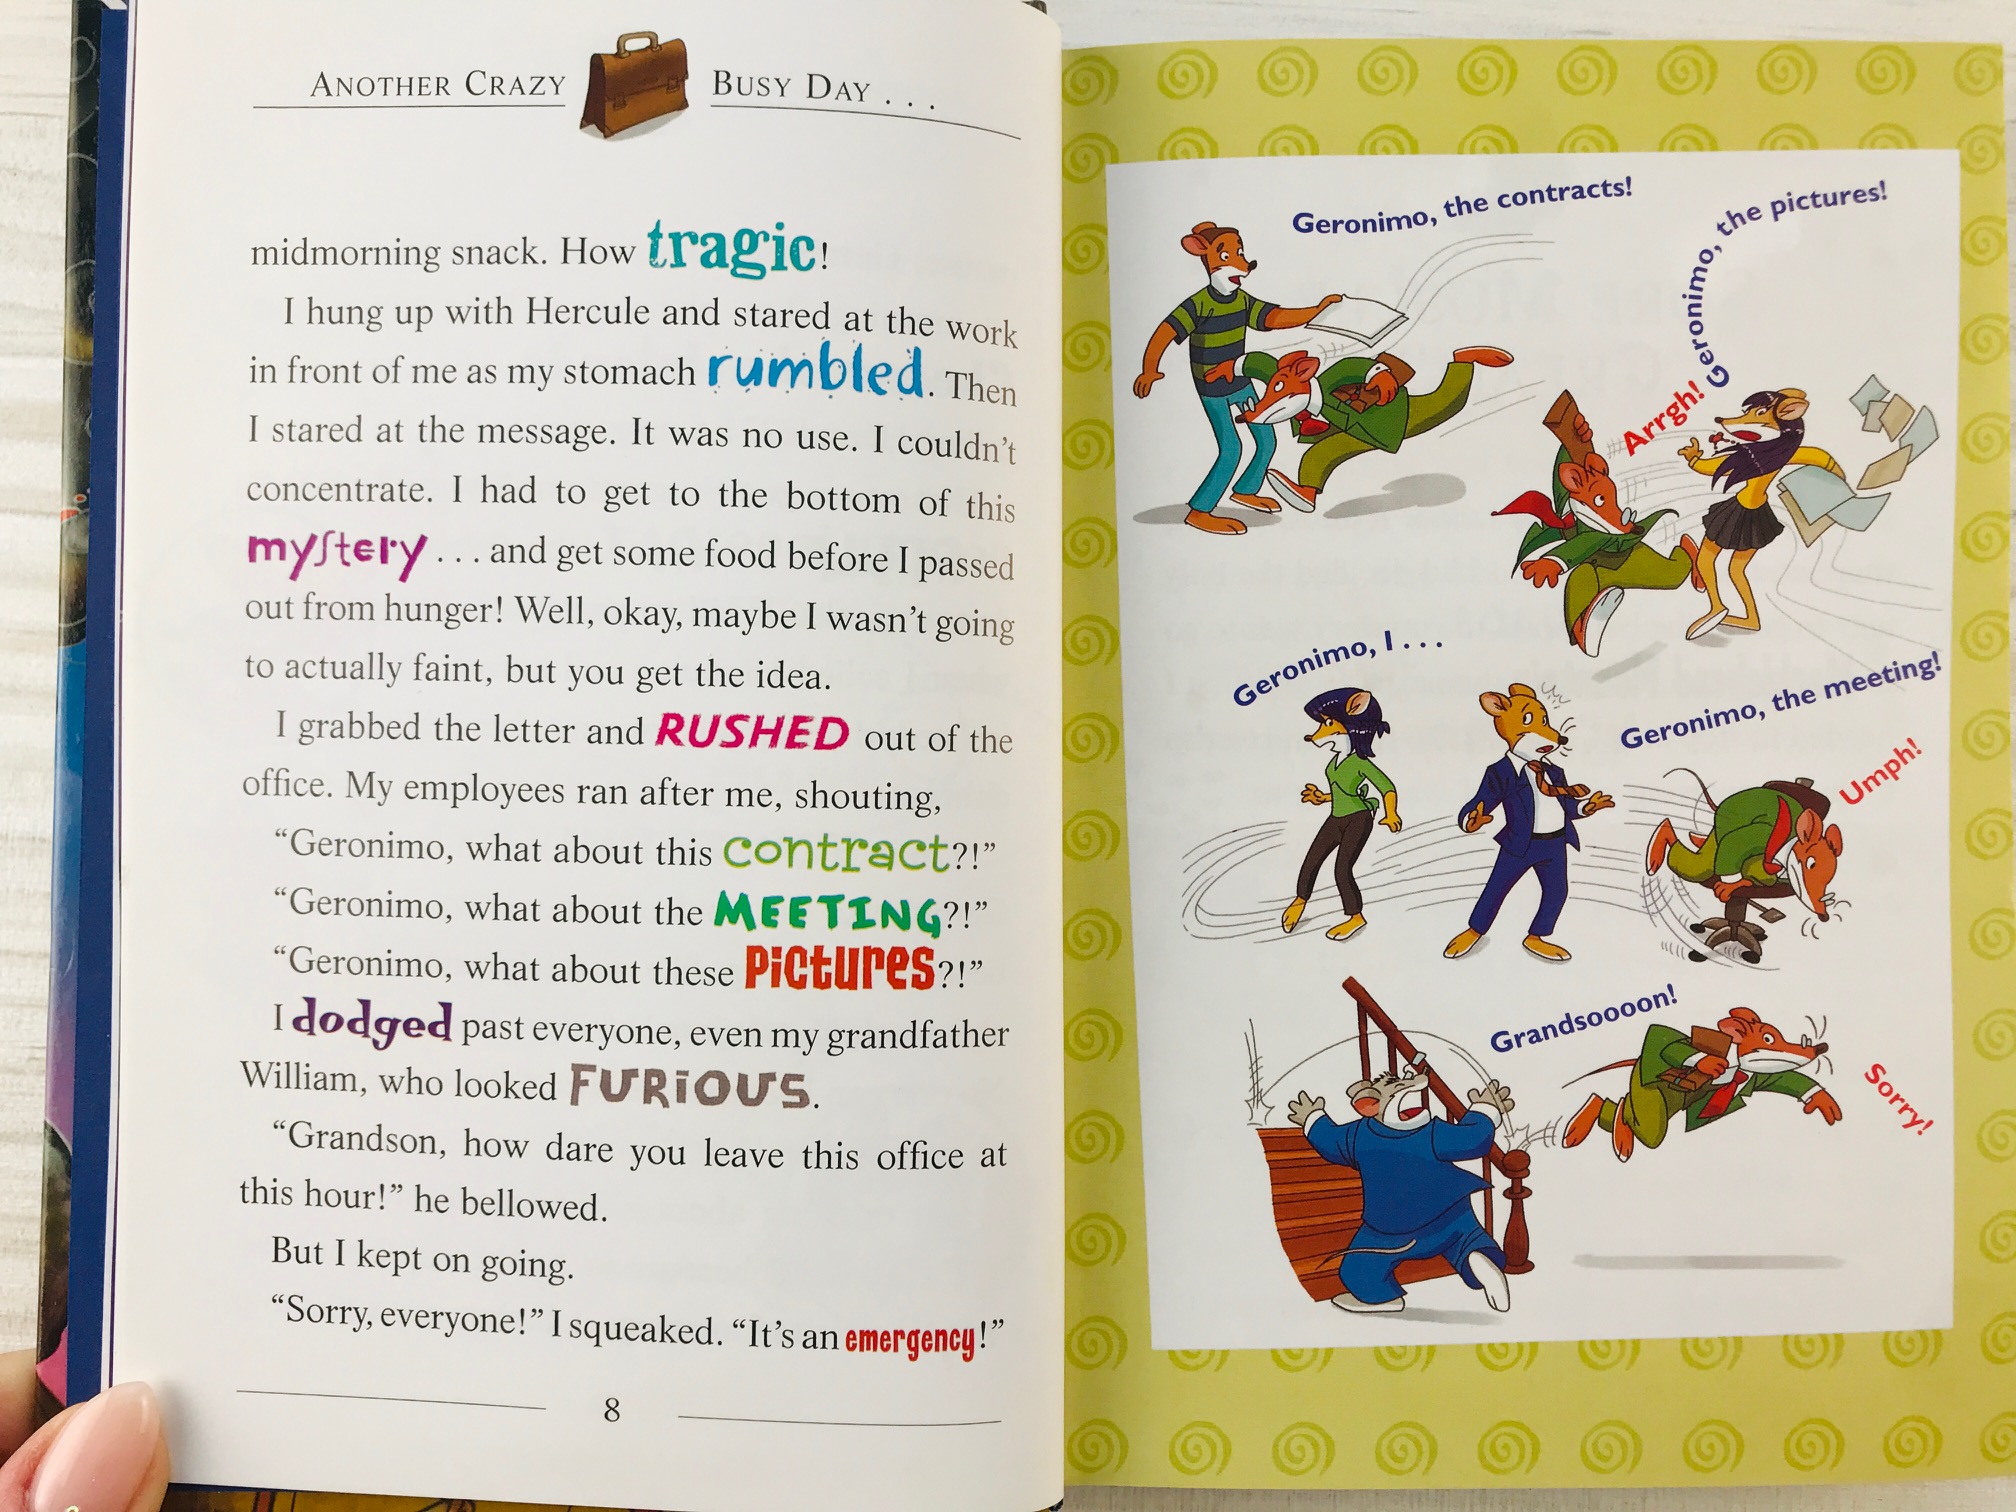 ANOTHER CRAZY BUSY DAY . . .
midmorning snack. How tragic!
I hung up with Hercule and stared at the work
in front of me as my stomach rumbled. Then
I stared at the message. It was no use. I couldn't
concentrate. I had to get to the bottom of this
mystery . . . and get some food before I passed
out from hunger! Well, okay, maybe I wasn't going
to actually faint, but you get the idea.
I grabbed the letter and RUSHED out of the
office. My employees ran after me, shouting,
“Geronimo, what about this contract?!”
“Geronimo, what about the MEETING?!”
“Geronimo, what about these PiCtUReS?!”
I dodged past everyone, even my grandfather
William, who looked FURiOUS.
“Grandson, how dare you leave this office at
this hour!” he bellowed.
But I kept on going.
“Sorry, everyone!” I squeaked. “It's an emergency!”
8
Geronimo, the contracts!
Geronimo, the pictures!
Arrgh!
Geronimo, I . . .
Geronimo, the meeting!
Umph!
Grandsoooon!
Sorry!